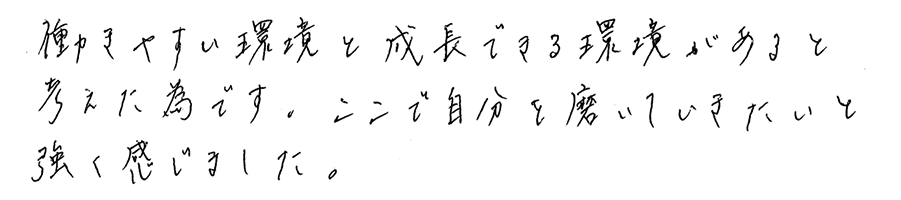 働きやすい環境と成長できる環境があると
考えた為です。ここで自分を磨いていきたいと
強く感じました。